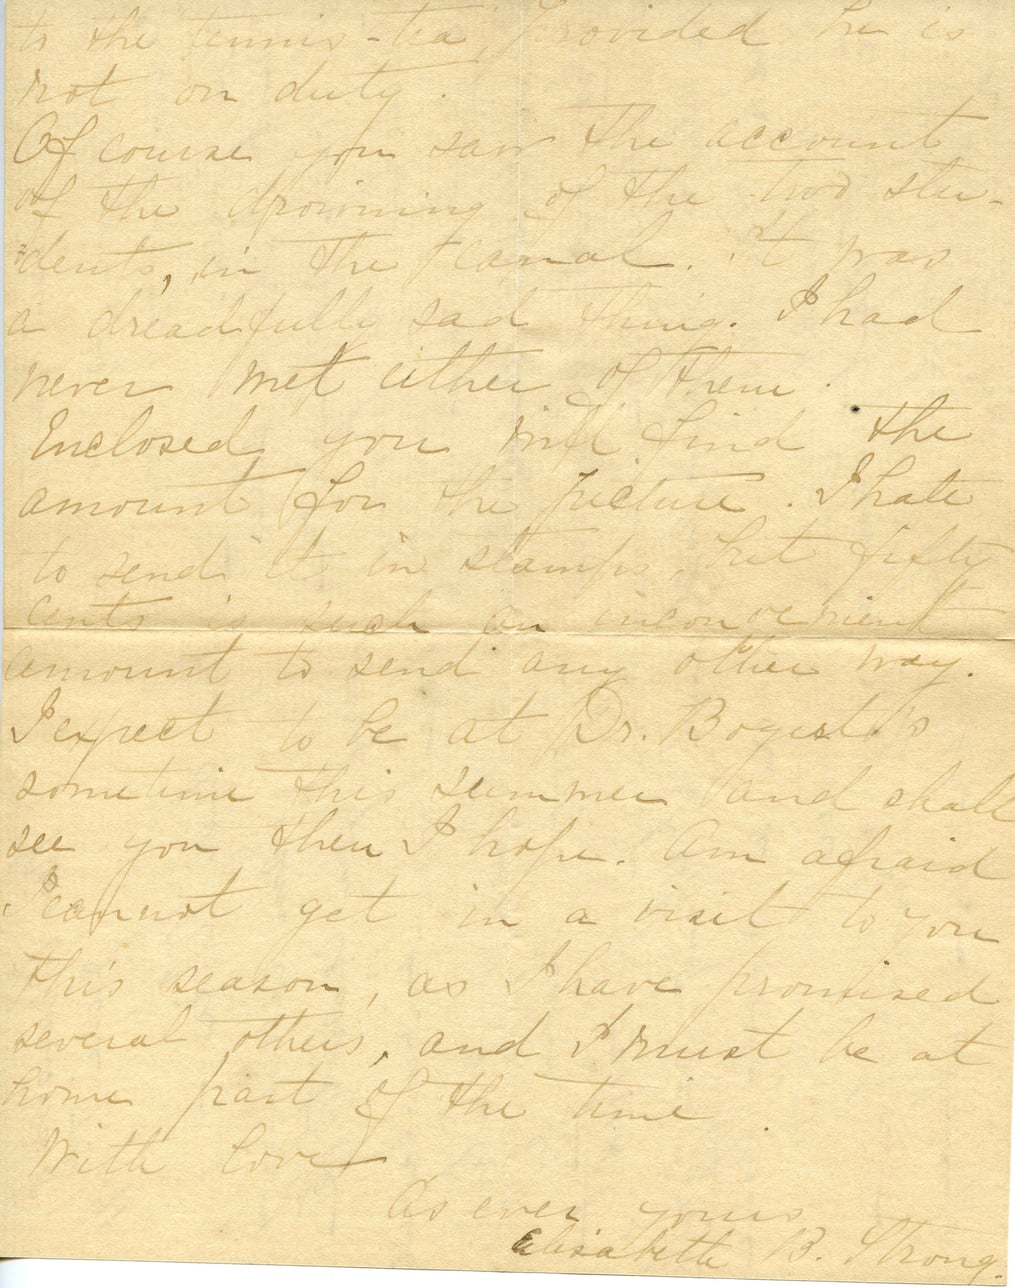 to the "tennis-tea", provided he is
not on duty.
Of course you saw the account
of the drowning of the two stu-
dents, in the canal. It was
a dreadfully sad thing. I had
never met either of them.
Enclosed you will find the
amount for the picture. I hate
to send it in stamps, but fifty
cents is such an inconvenient
amount to send any other way.
I expect to be at Dr. Bogert's
sometime this summer and shall
see you then I hope. Am afraid
I cannot get in a visit to you
this season, as I have promised
several others, and I must be at
home part of the time.
With love
As ever yours
Elisabeth B. Strong.